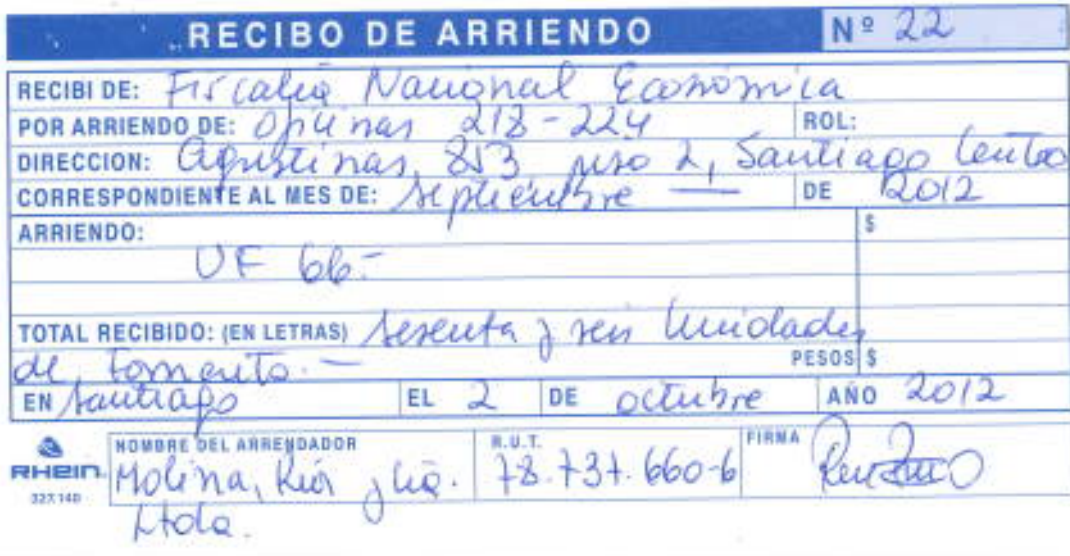 RECIBO DE ARRIENDO Nº 22
RECIBI DE: Fiscalía Nacional Económica
POR ARRIENDO DE: Oficinas 218-224 ROL:
DIRECCION: Agustinas 853 piso 2, Santiago Centro
CORRESPONDIENTE AL MES DE: Septiembre — DE 2012
ARRIENDO: $
UF 66.-
TOTAL RECIBIDO: (EN LETRAS) Sesenta y seis Unidades
de Fomento.— PESOS $
EN Santiago EL 2 DE octubre AÑO 2012
RHEIN NOMBRE DEL ARRENDADOR R.U.T. FIRMA
32X140 Molina, y Cía. 78.737.660-6
Ltda.